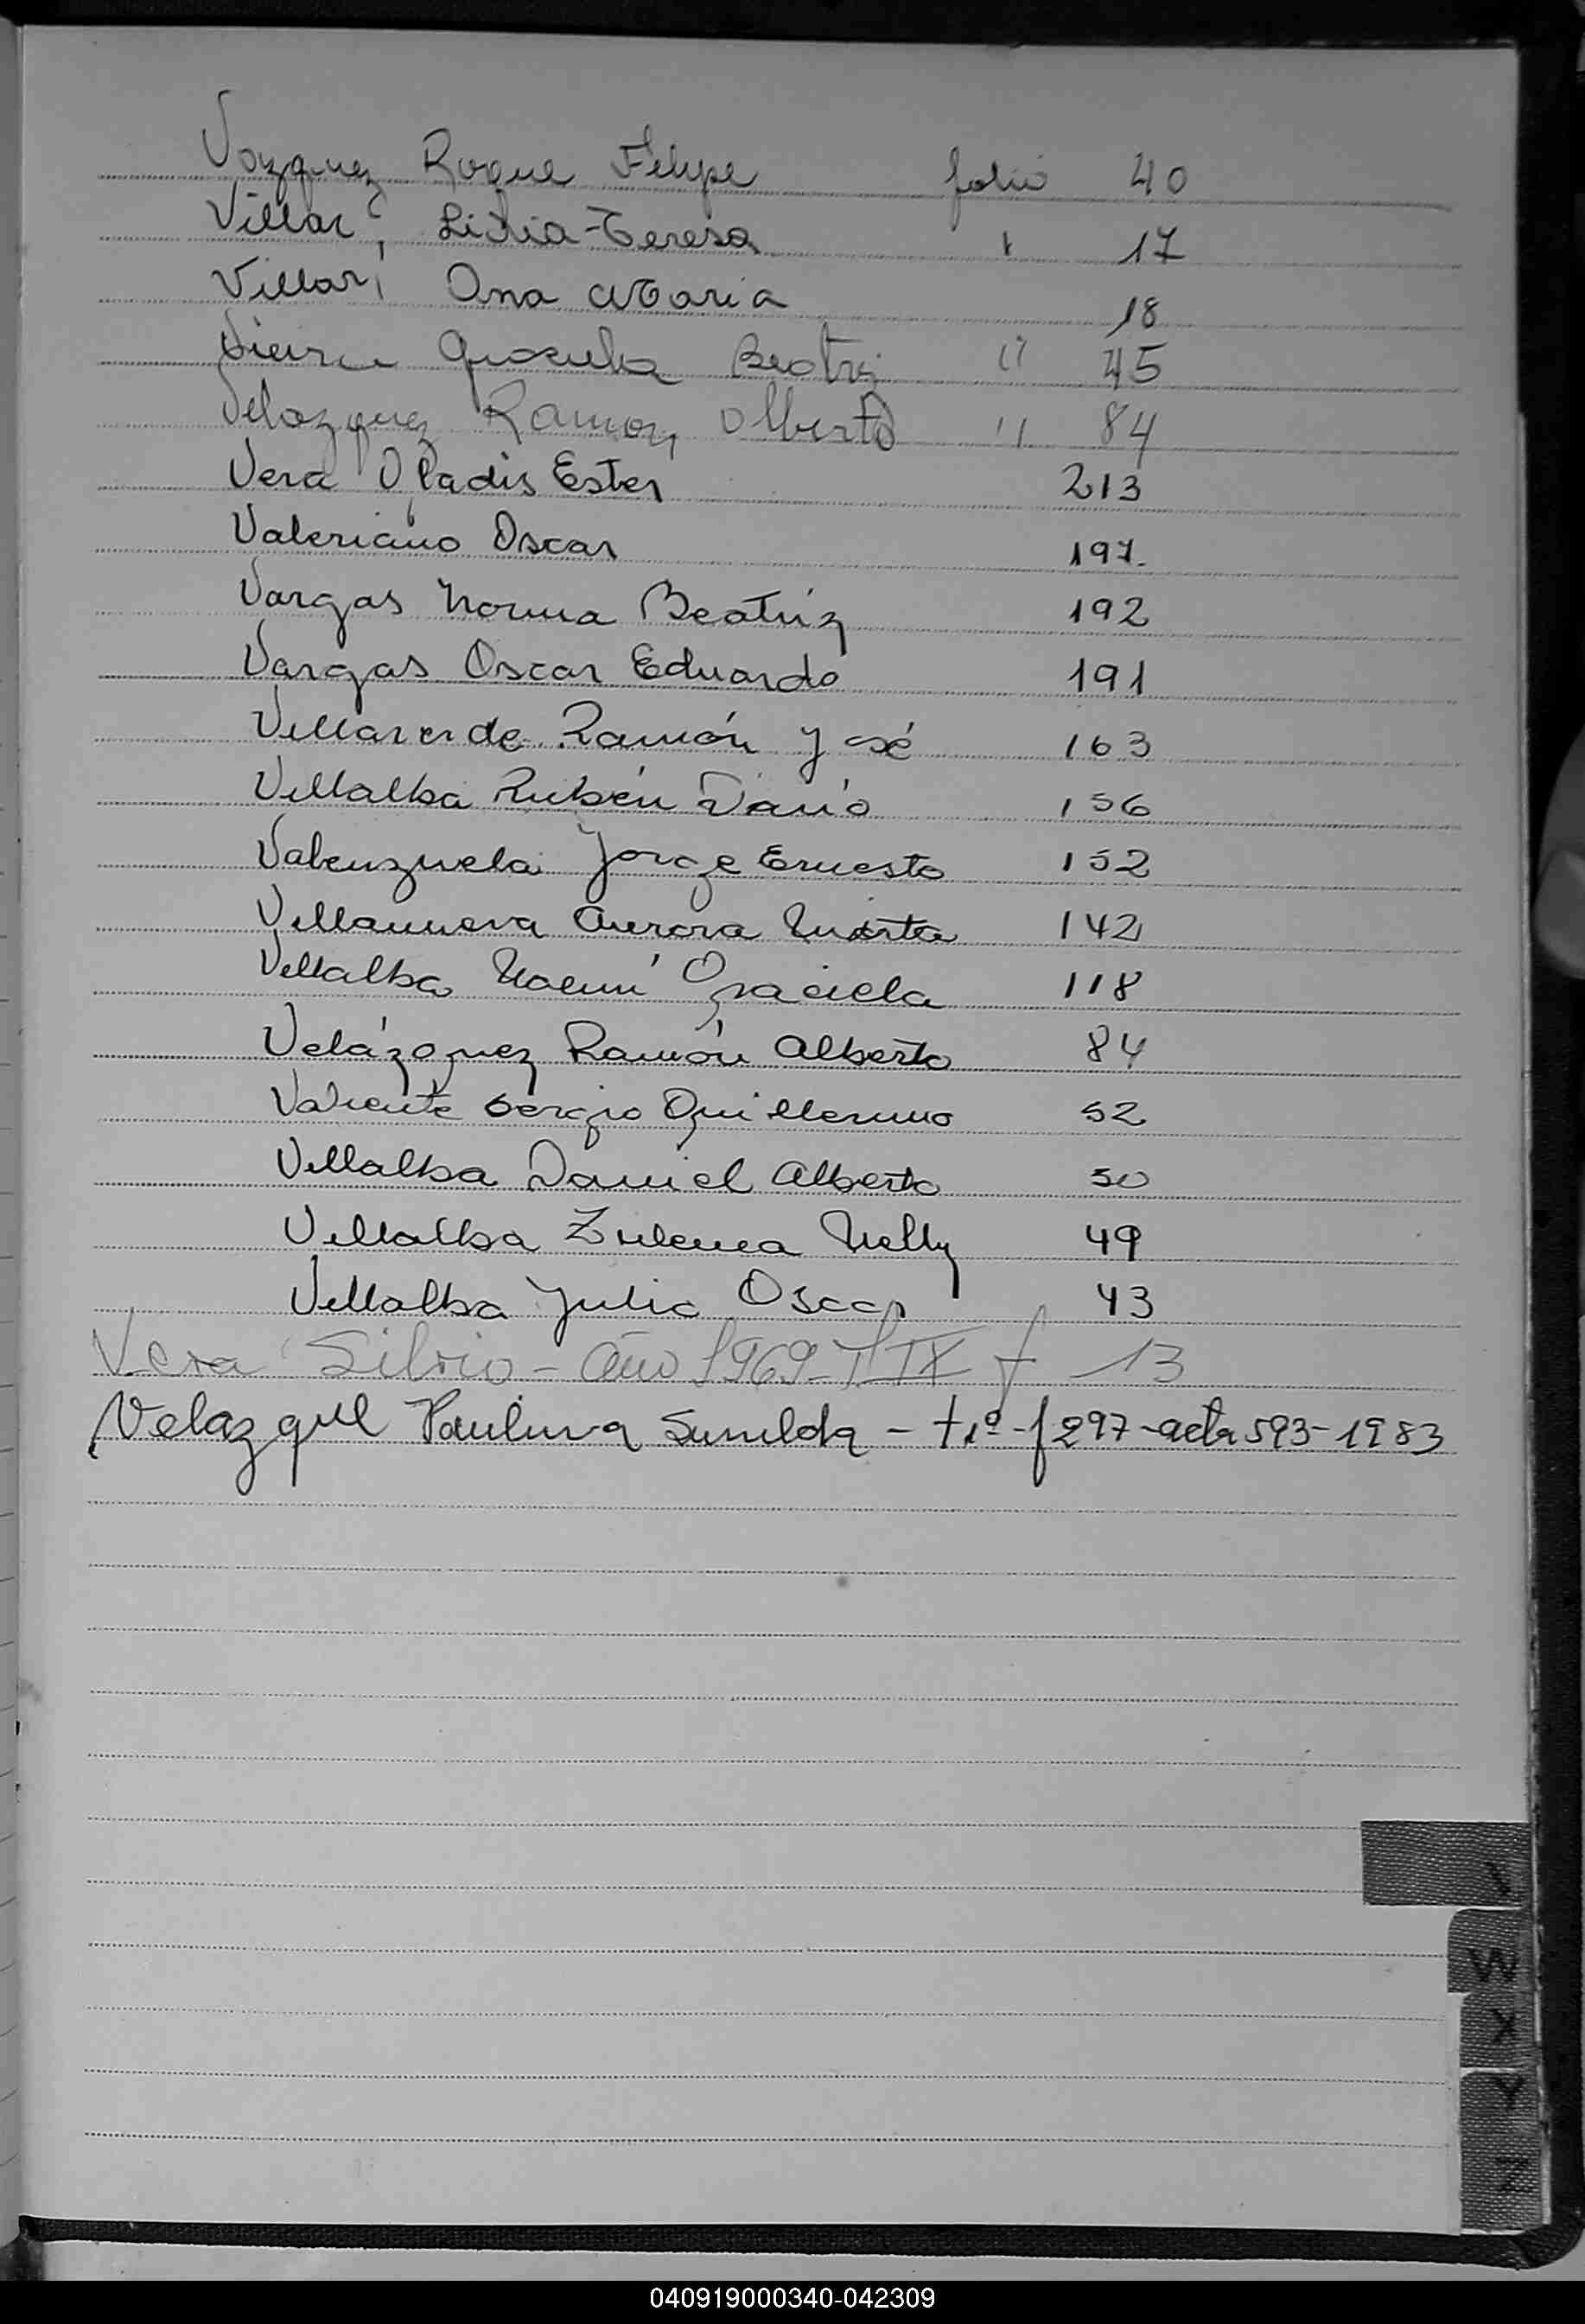 Vazquez Roque Felipe folio 40
Villar, Lidia-Teresa " 17
Villar, Ana Maria 18
Vieira Graciela Beatriz " 45
Velazquez Ramon Alberto " 84
Vera Gladis Ester 213
Valeriano Oscar 197.
Vargas Norma Beatriz 192
Vargas Oscar Eduardo 191
Villaverde Ramón José 163
Villalba Rubén Darío 156
Valenzuela Jorge Ernesto 152
Villanueva Aurora Mirta 142
Villalba Noemí Graciela 118
Velázquez Ramón Alberto 84
Valiente Sergio Guillermo 52
Villalba Daniel Alberto 50
Villalba Zulema Nelly 49
Villalba Julio Oscar 43
Vera Silvio - Año 1969 - T IX f 13
Velazquel Paulina Sunilda - t 1º - f 297 - acta 593 - 1983
V
W
X
Y
Z
040919000340-042309